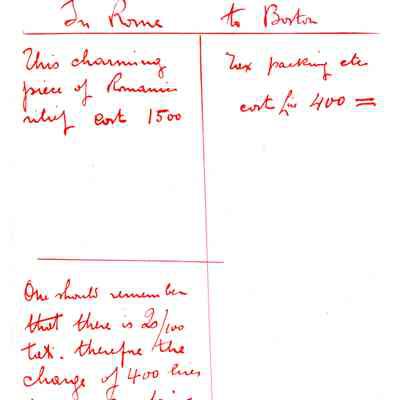 In Rome
to Boston
This charming
piece of Romanic
relief cost 1500
Tax packing etc
cost Lire 400 =
One should remember
that there is 20/100
tax. therefore the
charge of 400 lires